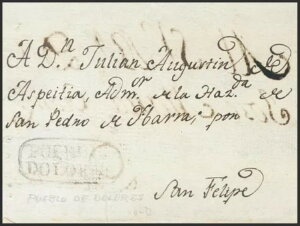 A D.n Julian Augustin de
Aspeitia, Adm.or de la Haz.da de
San Pedro de Ibarra, por
PUEBLO DE
DOLORES
PUEBLO DE DOLORES
San Felipe